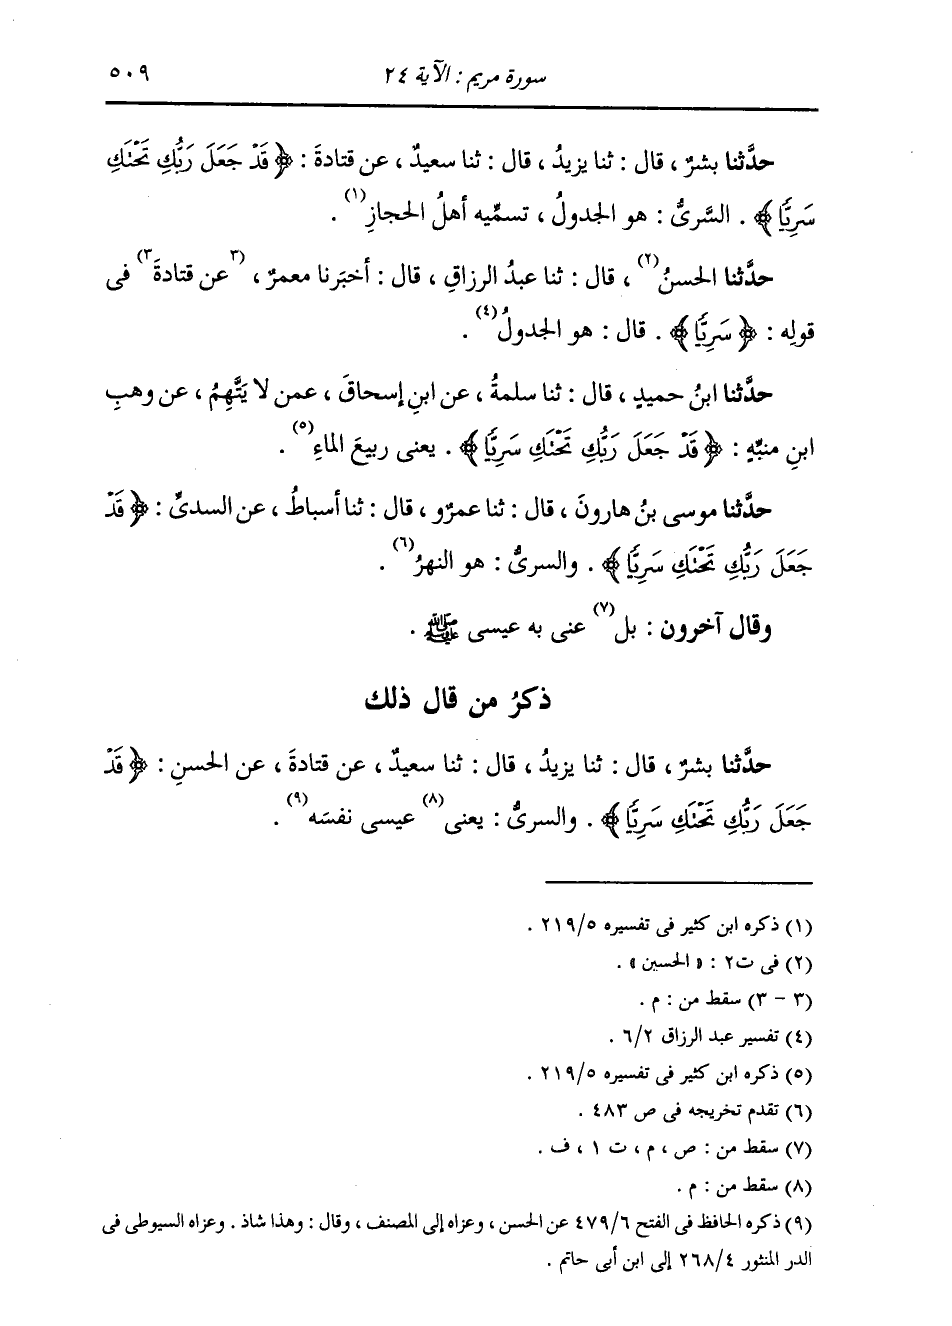 سورة مريم : الآية ٢٤ ٥٠٩
حدَّثنا بشرٌ ، قال : ثنا يزيدُ ، قال : ثنا سعيدٌ ، عن قتادةَ : ﴿ قَدْ جَعَلَ رَبُّكِ تَحْتَكِ
سَرِيًّا ﴾ . السَّرىُّ : هو الجدولُ ، تسمِّيه أهلُ الحجازِ(١) .
حدَّثنا الحسنُ(٢) ، قال : ثنا عبدُ الرزاقِ ، قال : أخبَرنا معمرٌ ، (٣)عن قتادةَ(٣) فى
قولِه : ﴿ سَرِيًّا ﴾ . قال : هو الجدولُ(٤) .
حدَّثنا ابنُ حميدٍ ، قال : ثنا سلمةُ ، عن ابنِ إسحاقَ ، عمن لا يَتَّهِمُ ، عن وهبِ
ابنِ منبِّهٍ : ﴿ قَدْ جَعَلَ رَبُّكِ تَحْتَكِ سَرِيًّا ﴾ . يعنى ربيعَ الماءِ(٥) .
حدَّثنا موسى بنُ هارونَ ، قال : ثنا عمرٌو ، قال : ثنا أسباطُ ، عن السدىِّ : ﴿ قَدْ
جَعَلَ رَبُّكِ تَحْتَكِ سَرِيًّا ﴾ . والسرىُّ : هو النهرُ(٦) .
وقال آخرون : بل(٧) عنى به عيسى ﷺ .
ذكرُ من قال ذلك
حدَّثنا بشرٌ ، قال : ثنا يزيدُ ، قال : ثنا سعيدٌ ، عن قتادةَ ، عن الحسنِ : ﴿ قَدْ
جَعَلَ رَبُّكِ تَحْتَكِ سَرِيًّا ﴾ . والسرىُّ : يعنى(٨) عيسى نفسَه(٩) .
(١) ذكره ابن كثير فى تفسيره ٢١٩/٥ .
(٢) فى ت٢ : « الحسين » .
(٣ - ٣) سقط من : م .
(٤) تفسير عبد الرزاق ٦/٢ .
(٥) ذكره ابن كثير فى تفسيره ٢١٩/٥ .
(٦) تقدم تخريجه فى ص ٤٨٣ .
(٧) سقط من : ص ، م ، ت ١ ، ف .
(٨) سقط من : م .
(٩) ذكره الحافظ فى الفتح ٤٧٩/٦ عن الحسن ، وعزاه إلى المصنف ، وقال : وهذا شاذ . وعزاه السيوطى فى
الدر المنثور ٢٦٨/٤ إلى ابن أبى حاتم .